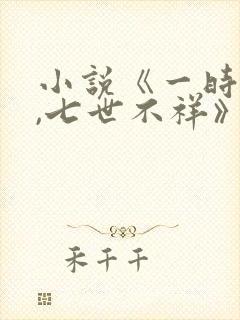 小说《一时
,七世不祥》
禾千千